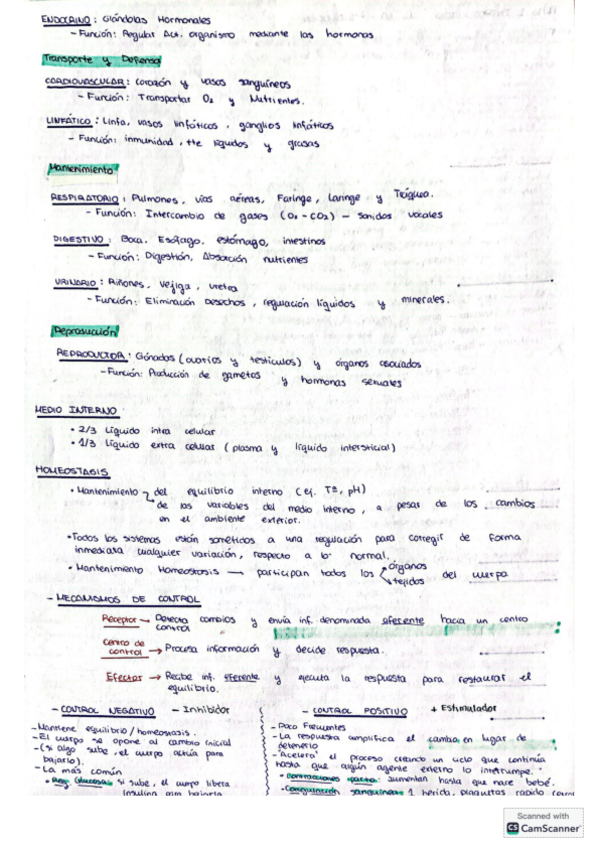 ENDOCRINO : Glándulas Hormonales
- Función: Regular Act. organismo mediante las hormonas
Transporte y Defensa
CARDIOVASCULAR : corazón y vasos sanguíneos
- Función: Transportar O₂ y Nutrientes.
LINFÁTICO : Linfa, vasos linfáticos, ganglios linfáticos
- Función: inmunidad, tte líquidos y grasas
Mantenimiento
RESPIRATORIO : Pulmones, vías aéreas, Faringe, Laringe y Tráquea.
- Función: Intercambio de gases (O₂ - CO₂) - sonidos vocales
DIGESTIVO : Boca, Esófago, estómago, intestinos
- Función: Digestión, Absorción nutrientes
URINARIO : Riñones, vejiga, uretra
- Función: Eliminación Desechos, regulación líquidos y minerales.
Reproducción
REPRODUCTOR : Gónadas (ovarios y testículos) y órganos asociados
- Función: Producción de gametos y hormonas sexuales
MEDIO INTERNO
• 2/3 Líquido intra celular
• 1/3 Líquido extra celular (plasma y líquido intersticial)
HOMEOSTASIS
• Mantenimiento del equilibrio interno (ej. Tª, pH)
de las variables del medio interno, a pesar de los cambios
en el ambiente exterior.
• Todos los sistemas están sometidos a una regulación para corregir de forma
inmediata cualquier variación, respecto a lo normal.
• Mantenimiento Homeostasis → participan todos los órganos
tejidos del cuerpo
- MECANISMOS DE CONTROL
Receptor → Detecta cambios y envía inf. denominada aferente hacia un centro
control
Centro de
control → Procesa información y decide respuesta.
Efector → Recibe inf. eferente y ejecuta la respuesta para restaurar el
equilibrio.
- CONTROL NEGATIVO - Inhibidor
- Mantiene equilibrio / homeostasis.
- El cuerpo se opone al cambio inicial
- (si algo sube, el cuerpo actúa para
bajarlo).
- La más común
• Reg. Glucosa: si sube, el cuerpo libera
insulina para bajarla
- CONTROL POSITIVO + Estimulador
- Poco Frecuentes
- La respuesta amplifica el cambio en lugar de
detenerlo
- "acelera" el proceso creando un ciclo que continúa
hasta que algún agente externo lo interrumpe.
• Contracciones parto: aumentan hasta que nace bebé.
- Coagulación sanguínea: 1 herida, plaquetas rápido
Scanned with
CS CamScanner